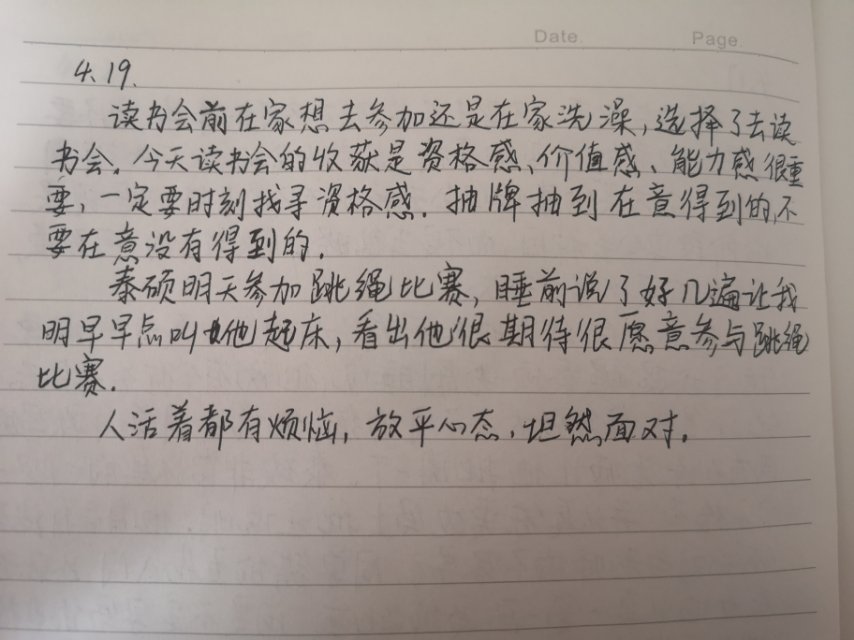 Date.
Page.
4.19.
读书会前在家想去参加还是在家洗澡,选择了去读
书会。今天读书会的收获是资格感、价值感、能力感很重
要,一定要时刻找寻资格感。抽牌抽到在意得到的,不
要在意没有得到的。
秦硕明天参加跳绳比赛,睡前说了好几遍让我
明早早点叫他起床,看出他很期待很愿意参与跳绳
比赛。
人活着都有烦恼,放平心态,坦然面对。